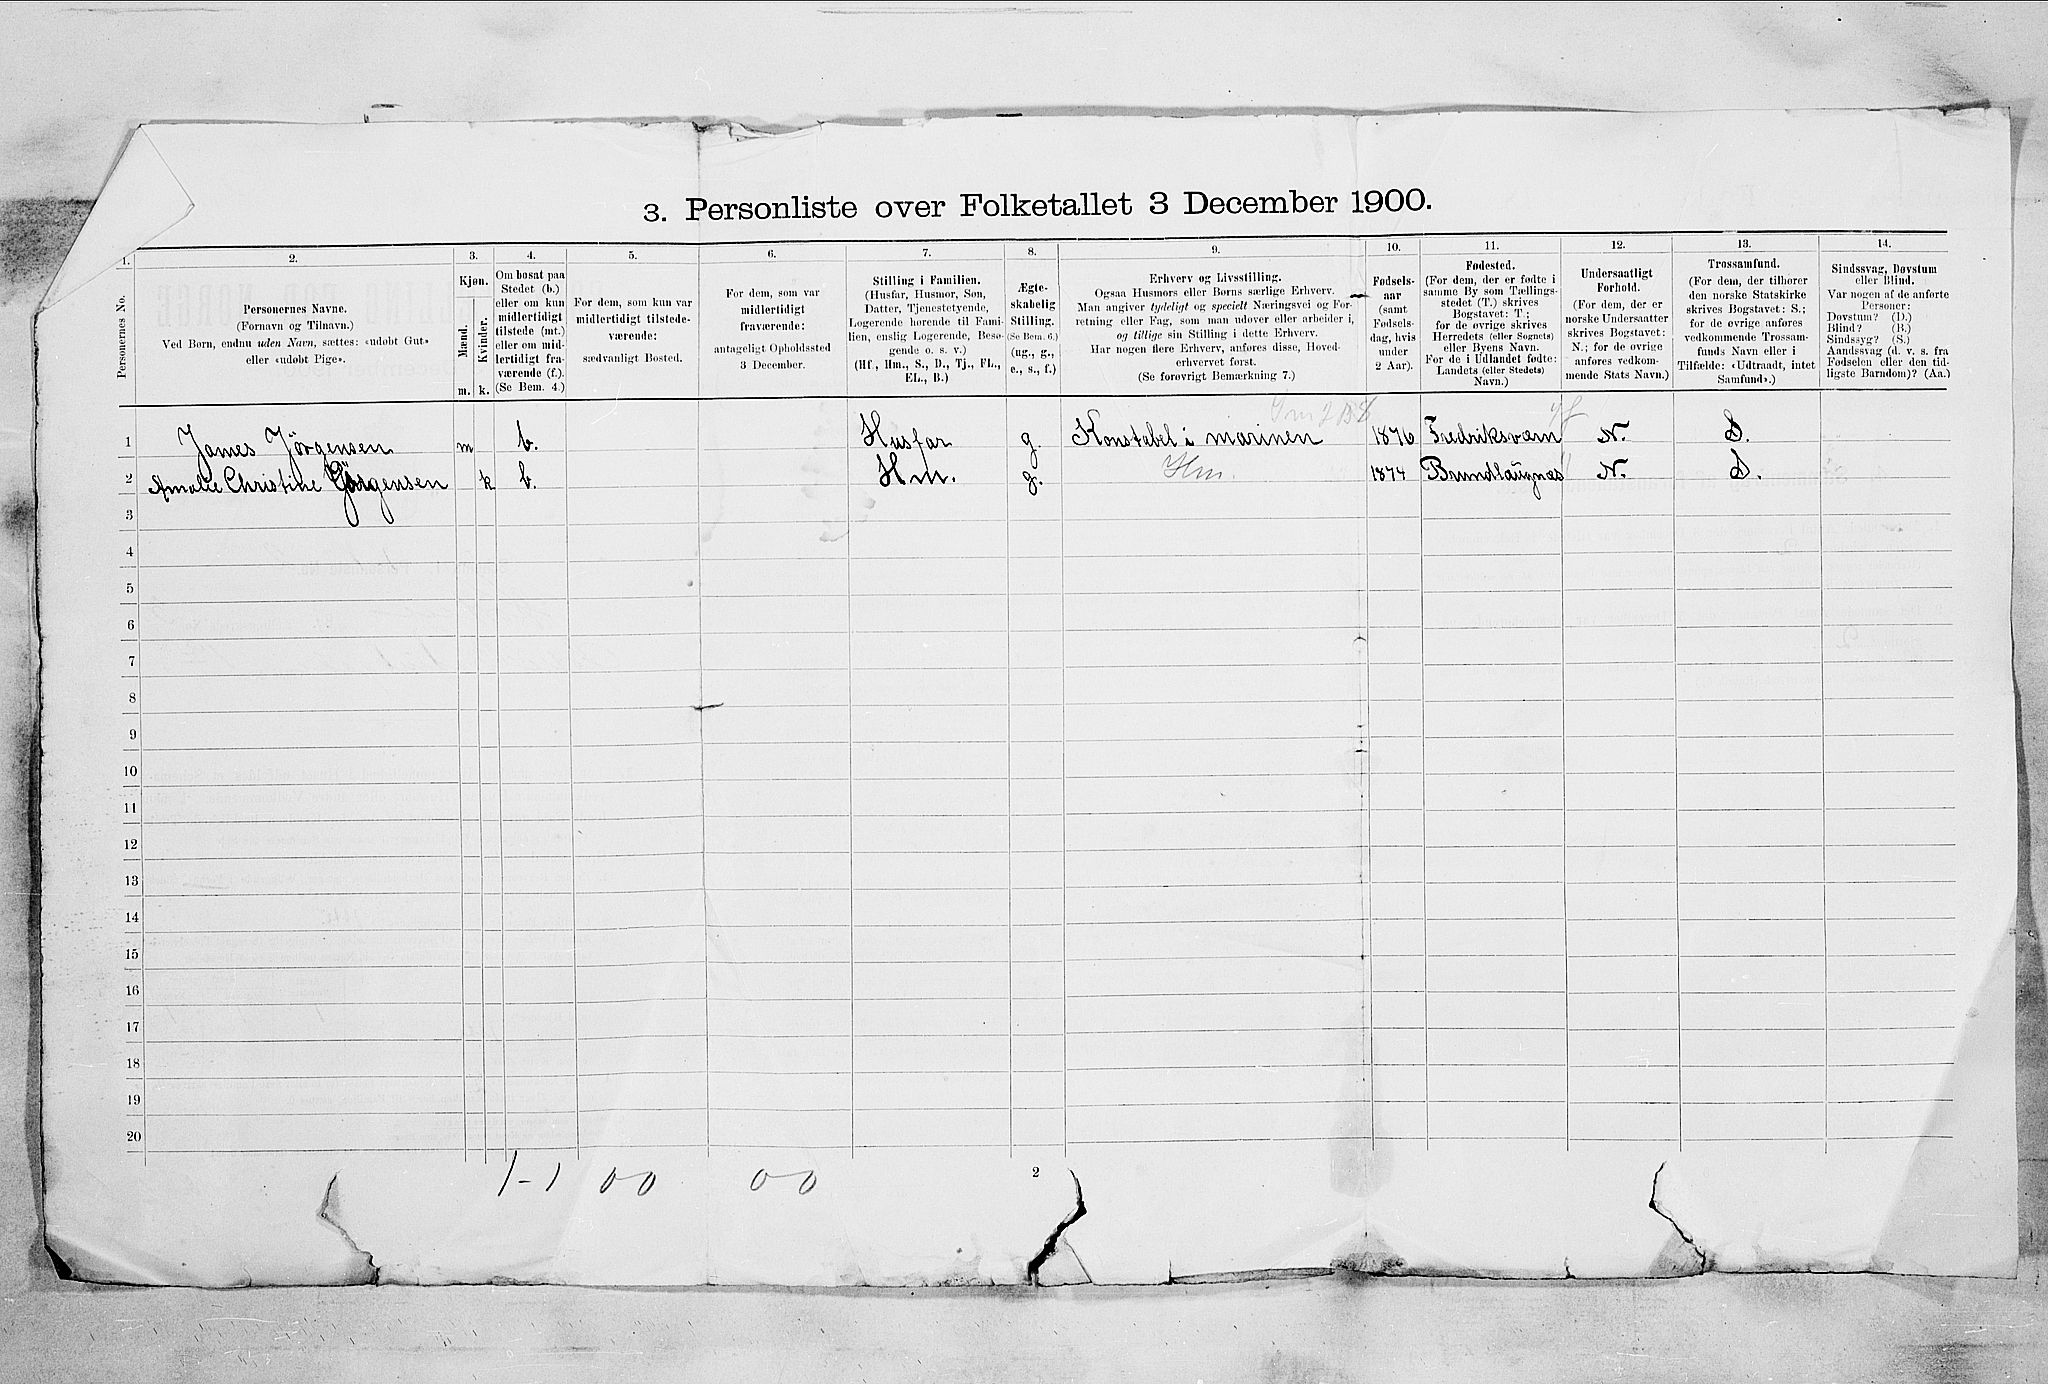 3. Personliste over Folketallet 3 December 1900.
1. 2. 3. 4. 5. 6. 7. 8. 9. 10. 11. 12. 13. 14.
Personernes No.
Personernes Navne.
(Fornavn og Tilnavn.)
Ved Børn, endnu uden Navn, sættes: «udøbt Gut»
eller «udøbt Pige».
Kjøn.
Mænd.
Kvinder.
m. k.
Om bosat paa
Stedet (b.)
eller om kun
midlertidigt
tilstede (mt.)
eller om mid-
lertidigt fra-
værende (f.).
(Se Bem. 4.)
For dem, som kun var
midlertidigt tilstede-
værende:
sædvanligt Bosted.
For dem, som var
midlertidigt
fraværende:
antageligt Opholdssted
3 December.
Stilling i Familien.
(Husfar, Husmor, Søn,
Datter, Tjenestetyende,
Logerende hørende til Fami-
lien, enslig Logerende, Besø-
gende o. s. v.)
(Hf., Hm., S., D., Tj., FL.,
EL., B.)
Ægte-
skabelig
Stilling.
(Se Bem. 6.)
(ug., g.,
e., s., f.)
Erhverv og Livsstilling.
Ogsaa Husmors eller Børns særlige Erhverv.
Man angiver tydeligt og specielt Næringsvei og For-
retning eller Fag, som man udøver eller arbeider i,
og tillige sin Stilling i dette Erhverv.
Har nogen flere Erhverv, anføres disse, Hoved-
erhvervet først.
(Se forøvrigt Bemærkning 7.)
Fødsels-
aar
(samt
Fødsels-
dag, hvis
under
2 Aar).
Fødested.
(For dem, der er fødte i
samme By som Tællings-
stedet (T.) skrives
Bogstavet: T.;
for de øvrige skrives
Herredets (eller Sognets)
eller Byens Navn.
For de i Udlandet fødte:
Landets (eller Stedets)
Navn.)
Undersaatligt
Forhold.
(For dem, der er
norske Undersaatter
skrives Bogstavet:
N.; for de øvrige
anføres vedkom-
mende Stats Navn.)
Trossamfund.
(For dem, der tilhører
den norske Statskirke
skrives Bogstavet: S.;
for de øvrige anføres
vedkommende Trossam-
funds Navn eller i
Tilfælde: «Udtraadt, intet
Samfund».)
Sindssvag, Døvstum
eller Blind.
Var nogen af de anførte
Personer:
Døvstum? (D.)
Blind? (B.)
Sindssyg? (S.)
Aandssvag (d. v. s. fra
Fødselen eller den tid-
ligste Barndom)? (Aa.)
1 James Jörgensen m b. Husfar g. Konstabel i marinen 1876 Fredriksværn N. S.
2 Amalie Christine Jörgensen k b. Hm. g. Hm. 1874 Brundlaugnæs N. S.
3
4
5
6
7
8
9
10
11
12
13
14
15
16
17
18
19
20
1-1 00 00
2